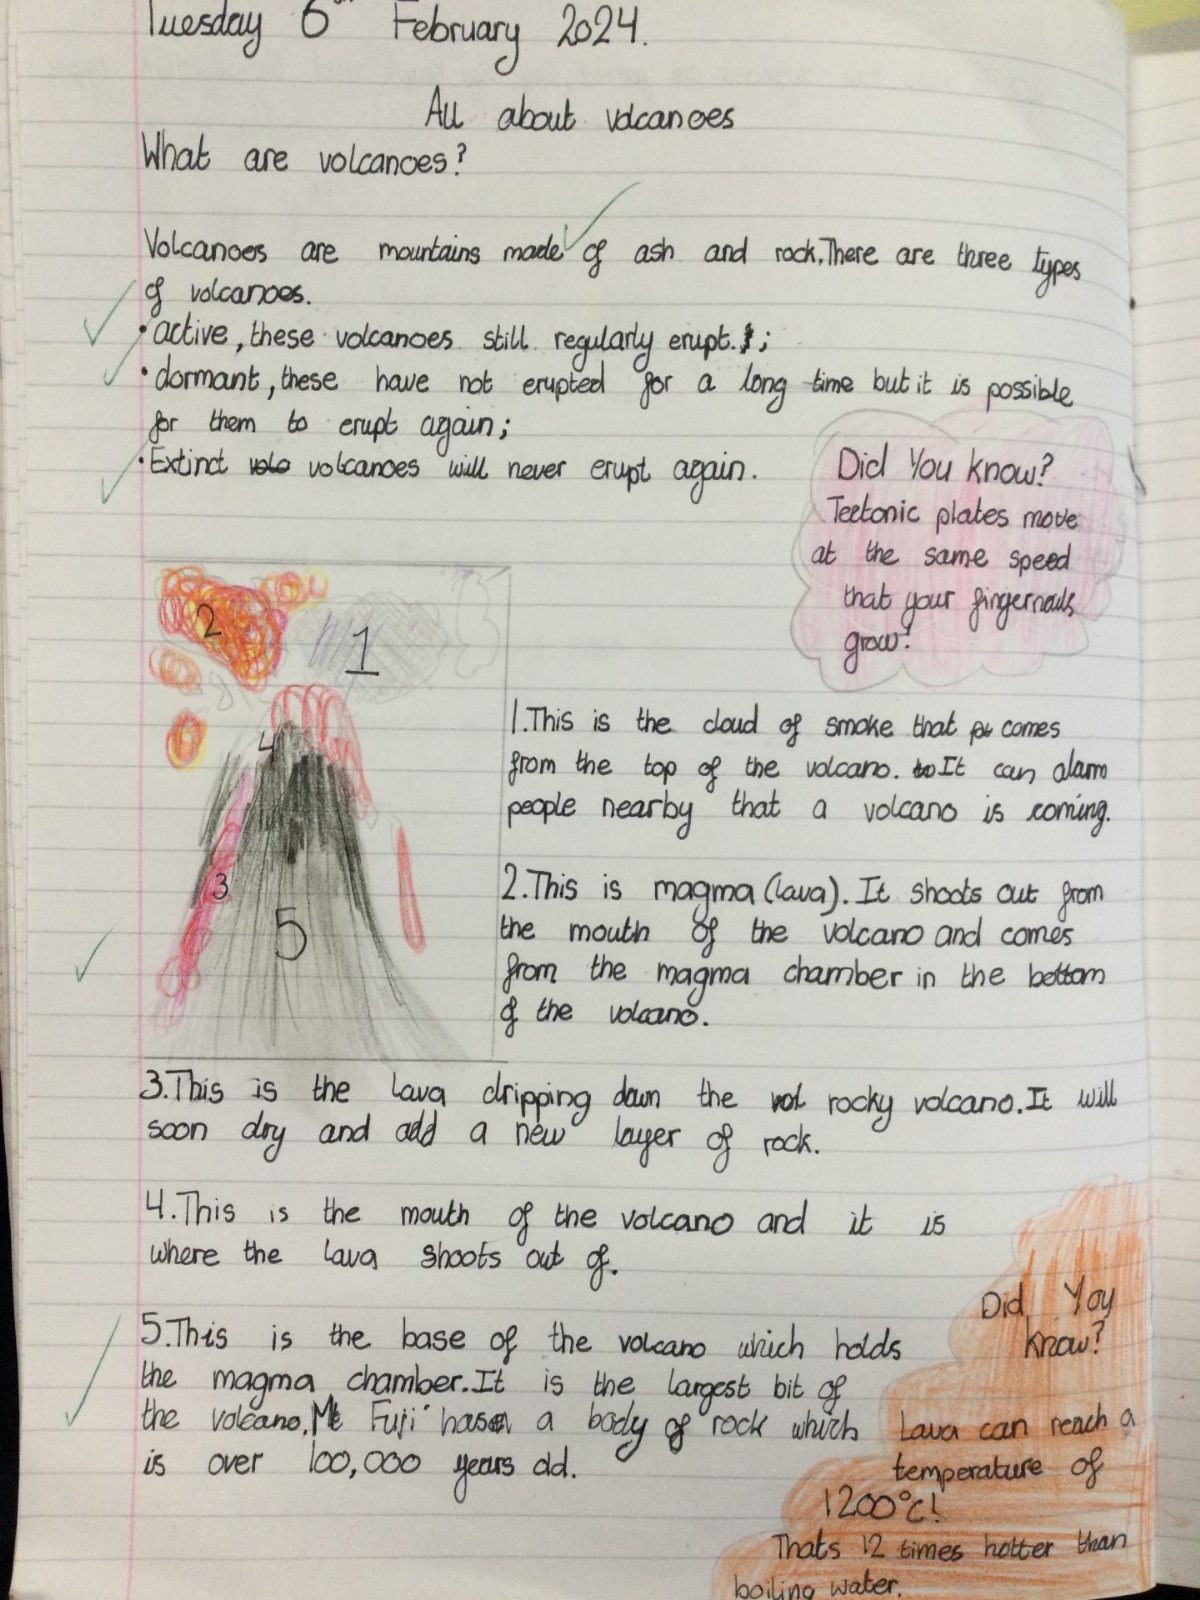 Tuesday 6th February 2024.
All about volcanoes
What are volcanoes?
Volcanoes are mountains made of ash and rock. There are three types
of volcanoes.
• active, these volcanoes still regularly erupt. ;
• dormant, these have not erupted for a long time but it is possible
for them to erupt again;
• Extinct volc volcanoes will never erupt again.
Did You know?
Tectonic plates move
at the same speed
that your fingernails
grow!
2
1
4
3
5
1. This is the cloud of smoke that comes
from the top of the volcano. It can alarm
people nearby that a volcano is coming.
2. This is magma (lava). It shoots out from
the mouth of the volcano and comes
from the magma chamber in the bottom
of the volcano.
3. This is the lava dripping down the vol rocky volcano. It will
soon dry and add a new layer of rock.
4. This is the mouth of the volcano and it is
where the lava shoots out of.
5. This is the base of the volcano which holds
the magma chamber. It is the largest bit of
the volcano. Mt Fuji has a body of rock which
is over 100,000 years old.
Did You
know?
Lava can reach a
temperature of
1200°c!
Thats 12 times hotter than
boiling water.